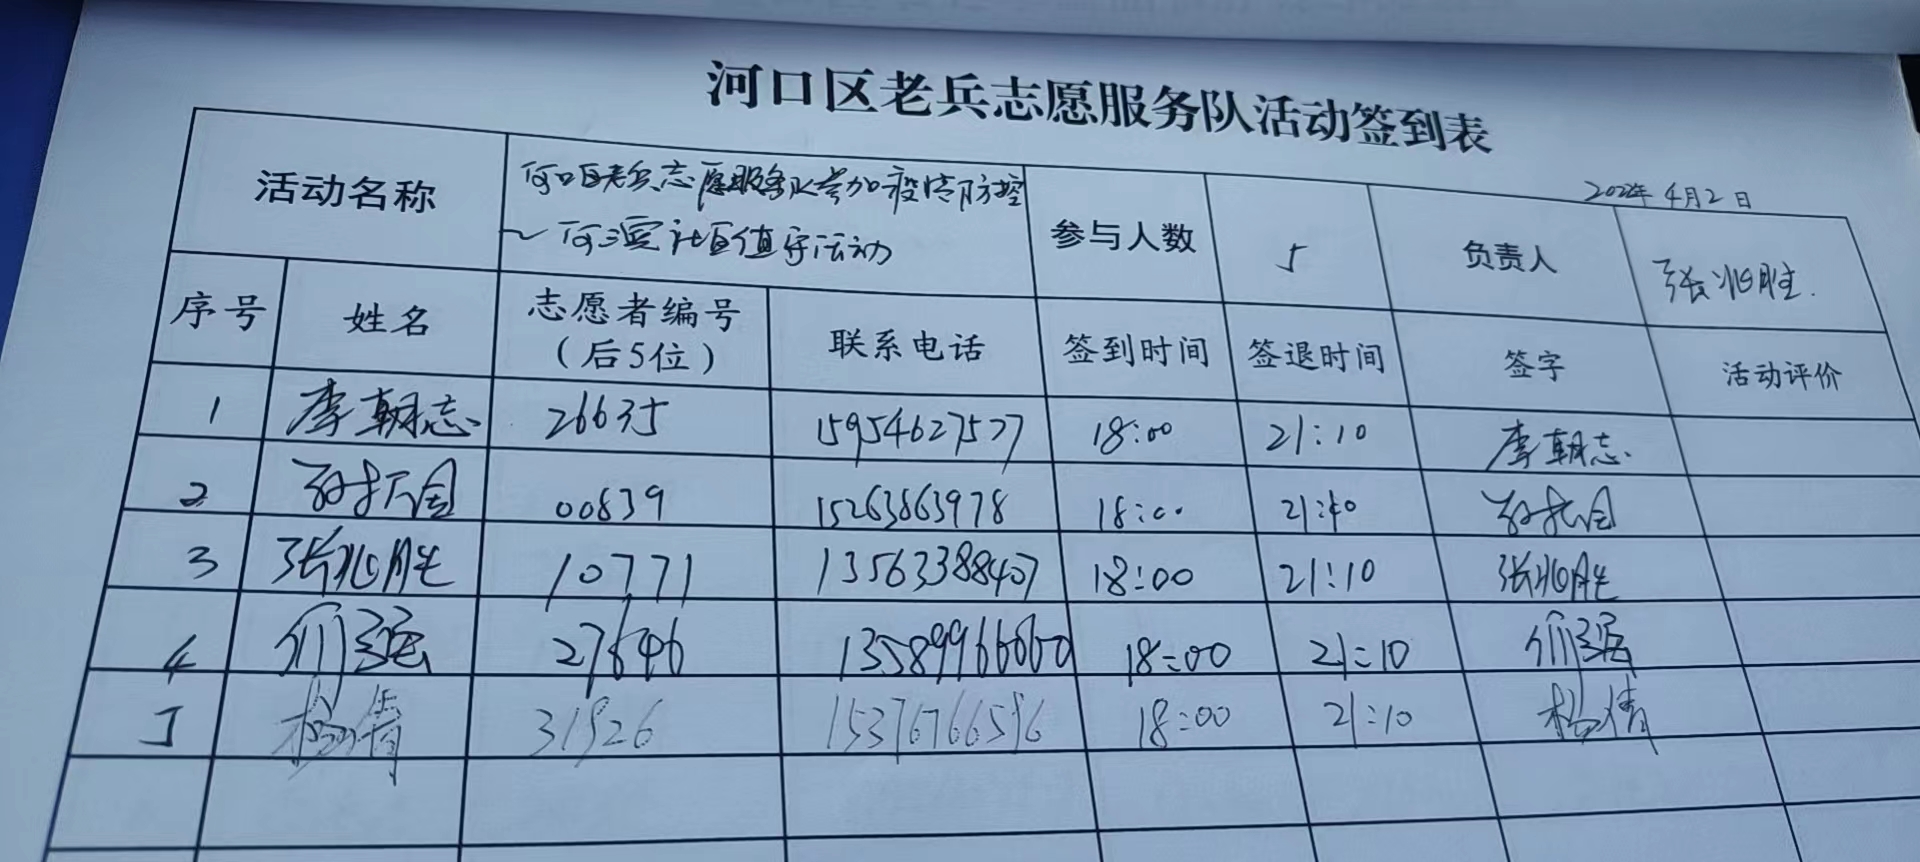 河口区老兵志愿服务队活动签到表
2022年4月2日
活动名称 河口区老兵志愿服务队参加疫情防控
~河滨社区值守活动
参与人数 5 负责人 张兆胜
序号 姓名 志愿者编号
（后5位） 联系电话 签到时间 签退时间 签字 活动评价
1 李朝志 26635 15954627577 18:00 21:10 李朝志
2 00839 15263863978 18:00 21:10
3 张兆胜 10771 13563388407 18:00 21:10 张兆胜
4 27646 18:00 21:10
5 杨倩 31926 15376766596 18:00 21:10 杨倩